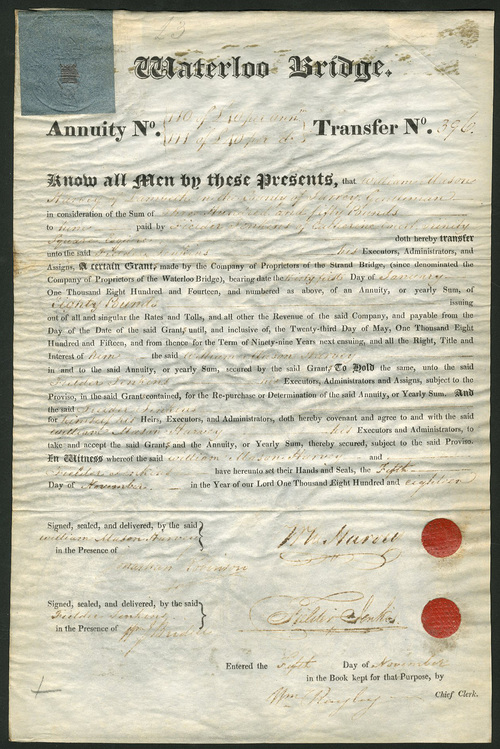 Waterloo Bridge.
Annuity No. Transfer No. 396.
Know all Men by these Presents, that William Mason
in consideration of the Sum of Hundred and fifty Pounds
to paid by
Square doth hereby transfer
unto the said his Executors, Administrators, and
Assigns, A certain Grant, made by the Company of Proprietors of the Strand Bridge, (since denominated the
Company of Proprietors of the Waterloo Bridge), bearing date the Day of January
One Thousand Eight Hundred and Fourteen, and numbered as above, of an Annuity, or yearly Sum, of
Pounds issuing
out of all and singular the Rates and Tolls, and all other the Revenue of the said Company, and payable from the
Day of the Date of the said Grant, until, and inclusive of, the Twenty-third Day of May, One Thousand Eight
Hundred and Fifteen, and from thence for the Term of Ninety-nine Years next ensuing, and all the Right, Title and
Interest of him the said William Mason Harvey
in and to the said Annuity, or yearly Sum, secured by the said Grant, To Hold the same, unto the said
Fielder Jenkins his Executors, Administrators and Assigns, subject to the
Proviso, in the said Grant contained, for the Re-purchase or Determination of the said Annuity, or Yearly Sum. And
the said Fielder Jenkins
for himself his Heirs, Executors, and Administrators, doth hereby covenant and agree to and with the said
William Mason Harvey his Executors and Administrators, to
take and accept the said Grant, and the Annuity, or Yearly Sum, thereby secured, subject to the said Proviso.
In Witness whereof the said William Mason Harvey and
Fielder Jenkins have hereunto set their Hands and Seals, the Fifth
Day of November in the Year of our Lord One Thousand Eight Hundred and eighteen
Signed, sealed, and delivered, by the said
William Mason Harvey
in the Presence of
Signed, sealed, and delivered, by the said
Fielder Jenkins
in the Presence of
Fielder Jenkins
Entered the Fifth Day of November
in the Book kept for that Purpose, by
Wm Chief Clerk.